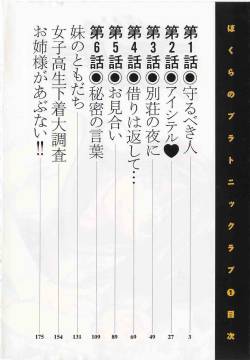 ぼくらのプラトニックラブ❶目次
第1話●守るべき人 3
第2話●アイシテル♥ 27
第3話●別荘の夜に 49
第4話●借りは返して… 69
第5話●お見合い 89
第6話●秘密の言葉 109
妹のともだち 131
女子高生下着大調査 154
お姉様があぶない!! 175